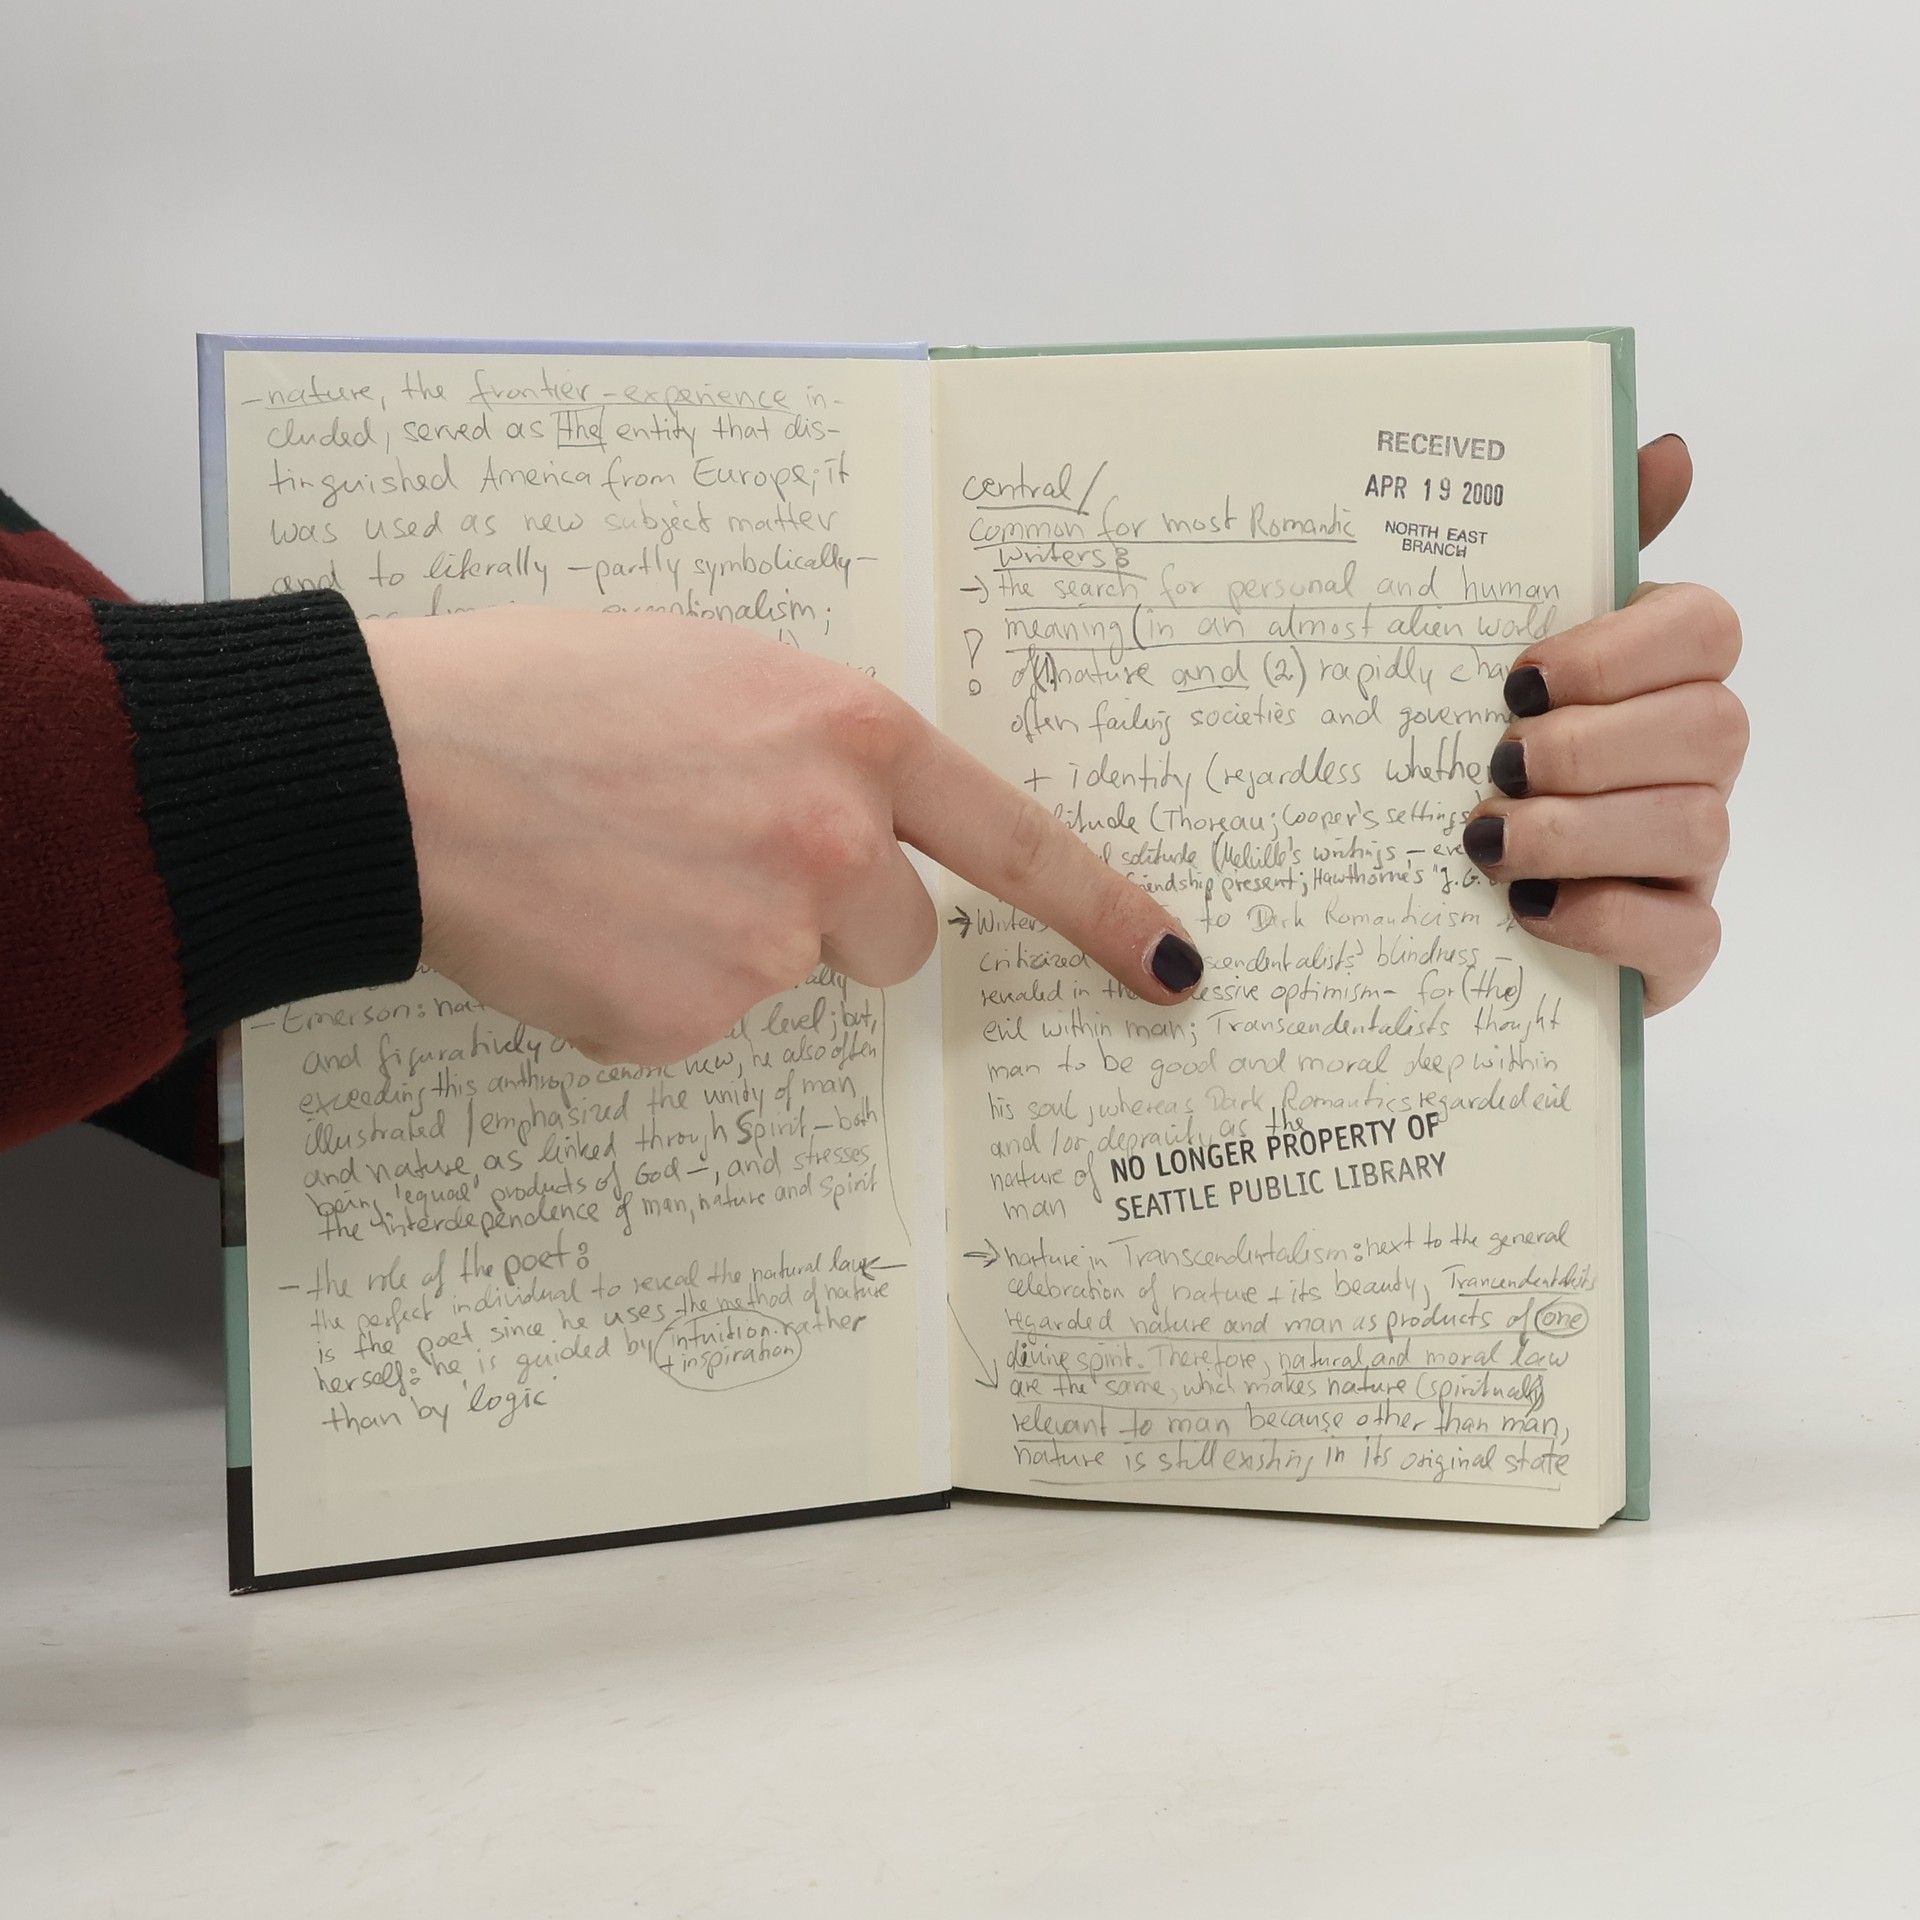 - nature, the frontier-experience in-
cluded, served as the entity that dis-
tinguished America from Europe; it
was used as new subject matter
and to literally - partly symbolically -
exceptionalism;
- Emerson: nat
and figuratively level; but,
exceeding this anthropocentric view, he also often
illustrated / emphasized the unity of man
and nature as linked through Spirit, - both
being 'equal' products of God -, and stresses
the interdependence of man, nature and Spirit
- the role of the poet:
the perfect individual to reveal the natural law
is the poet since he uses the method of nature
herself: he is guided by intuition rather
+ inspiration
than by 'logic'
RECEIVED
APR 19 2000
NORTH EAST
BRANCH
central /
common for most Romantic
writers:
→ the search for personal and human
! meaning (in an almost alien world
of (1) nature and (2) rapidly cha
often failing societies and governm
+ identity (regardless whether
(Thoreau; Cooper's settings
solitude (Melville's writings - eve
friendship present; Hawthorne's "Y. G.
→ Writers to Dark Romanticism
criticized blindness -
revealed in optimism - for (the)
evil within man; Transcendentalists thought
man to be good and moral deep within
his soul, whereas Dark Romantics regarded evil
and/or depravity as the
nature of
man
NO LONGER PROPERTY OF
SEATTLE PUBLIC LIBRARY
→ nature in Transcendentalism: next to the general
celebration of nature + its beauty, Trancendentalists
regarded nature and man as products of one
divine spirit. Therefore, natural and moral law
are the same, which makes nature (spiritually)
relevant to man because other than man,
nature is still existing in its original state